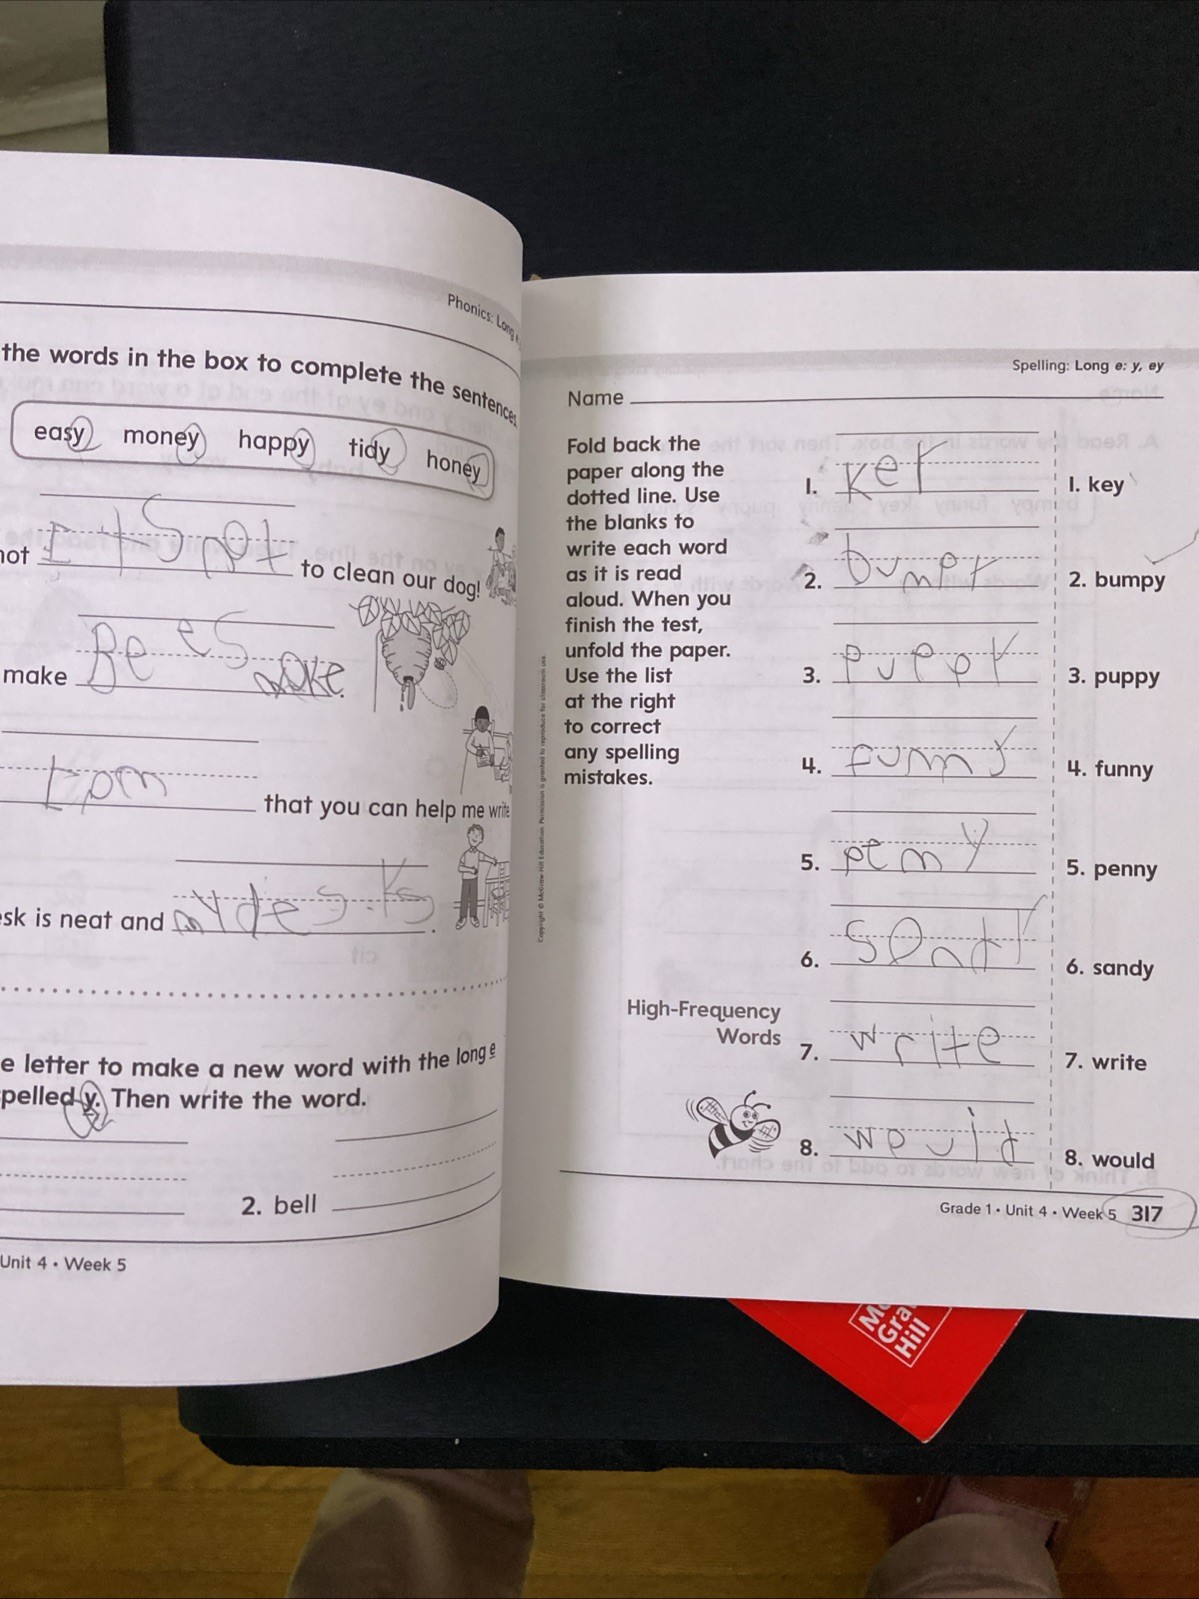 Phonics: Long e
the words in the box to complete the sentences
easy money happy tidy honey
not It S not to clean our dog!
make Bees make.
I om that you can help me write
esk is neat and my desks.
e letter to make a new word with the long e
spelled y. Then write the word.
2. bell
Unit 4 • Week 5
Copyright © McGraw-Hill Education. Permission is granted to reproduce for classroom use.
Spelling: Long e: y, ey
Name
Fold back the
paper along the
dotted line. Use
the blanks to
write each word
as it is read
aloud. When you
finish the test,
unfold the paper.
Use the list
at the right
to correct
any spelling
mistakes.
1. key 1. key
2. bumpy 2. bumpy
3. puppy 3. puppy
4. funny 4. funny
5. penny 5. penny
6. sandy 6. sandy
High-Frequency
Words
7. write 7. write
8. would 8. would
Grade 1 • Unit 4 • Week 5 317
Mc
Graw
Hill